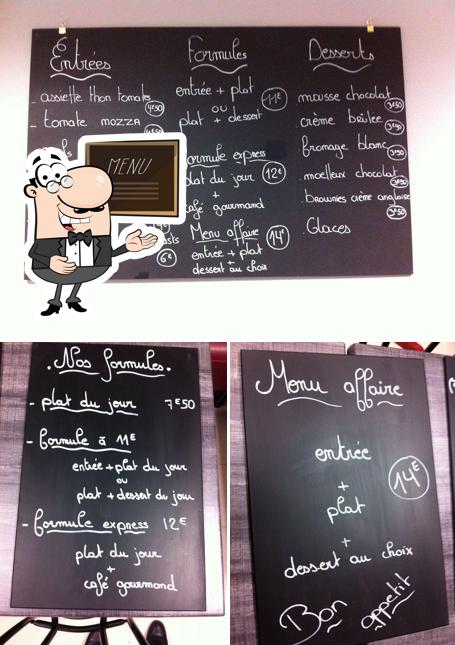 Entrées
- assiette thon tomate 4€50
- tomate mozza
6€
Formules
entrée + plat
ou
plat + dessert
11€
formule express
plat du jour 12€
+
café gourmand
Menu affaire
entrée + plat 14€
+
dessert au choix
Desserts
mousse chocolat 3€50
crème brûlée 3€50
fromage blanc 3€50
moelleux chocolat 3€50
brownies crème anglaise 3€50
Glaces
MENU
. Nos formules .
- plat du jour 7€50
- formule à 11€
entrée + plat du jour
ou
plat + dessert du jour
- formule express 12€
plat du jour
+
café gourmand
Menu affaire
entrée
+
plat
14€
+
dessert au choix
Bon appetit